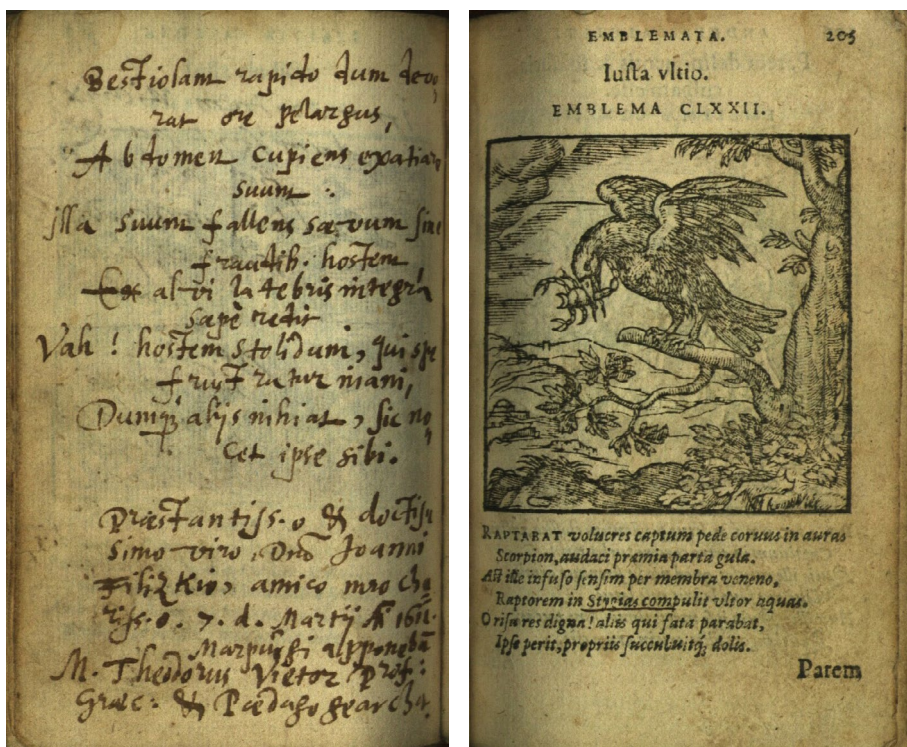 Bestiolam rapido dum devo,
rat ore pelargus,
Abdomen cupiens exatiare
suum:
illa suum fallens sævum sine
fraudib. hostem
Ex alvi latebris integra
sæpè redit
Vah! hostem stolidum, qui spe
frustratur inani,
Dumq; alijs inhiat, sic no,
cet ipse sibi.
Præstantiss.o & doctis
simo viro, Dno Joanni
amico meo cha
riss.o. 7. d. Martij
Marpurgi apponebā
M. Theodorus Vietor Prof:
Græc: & Pædagogearcha.
EMBLEMATA. 205
Iusta vltio.
EMBLEMA CLXXII.
RAPTABAT volucres captum pede coruus in auras
Scorpion, audaci præmia parta gulæ.
Ast ille infuso sensim per membra veneno,
Raptorem in Stygias compulit vltor aquas.
O risu res digna! aliis qui fata parabat,
Ipse perit, propriis succubuitq; dolis.
Parem